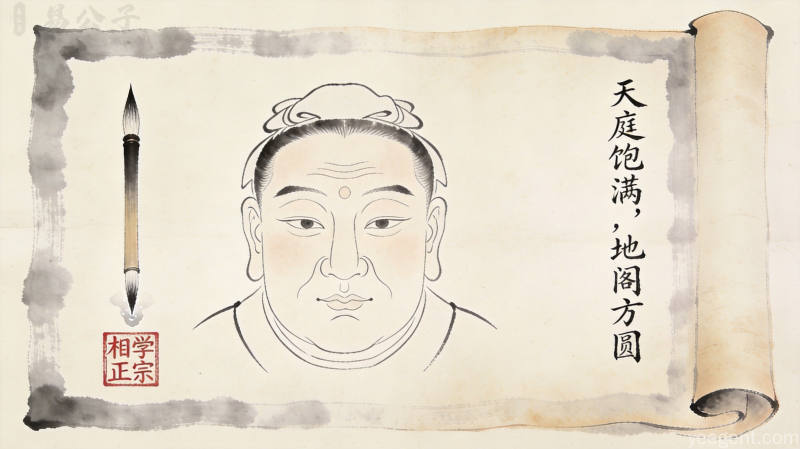 易公子
天庭饱满，，地阁方圆
学宗
相正
yeagent.com